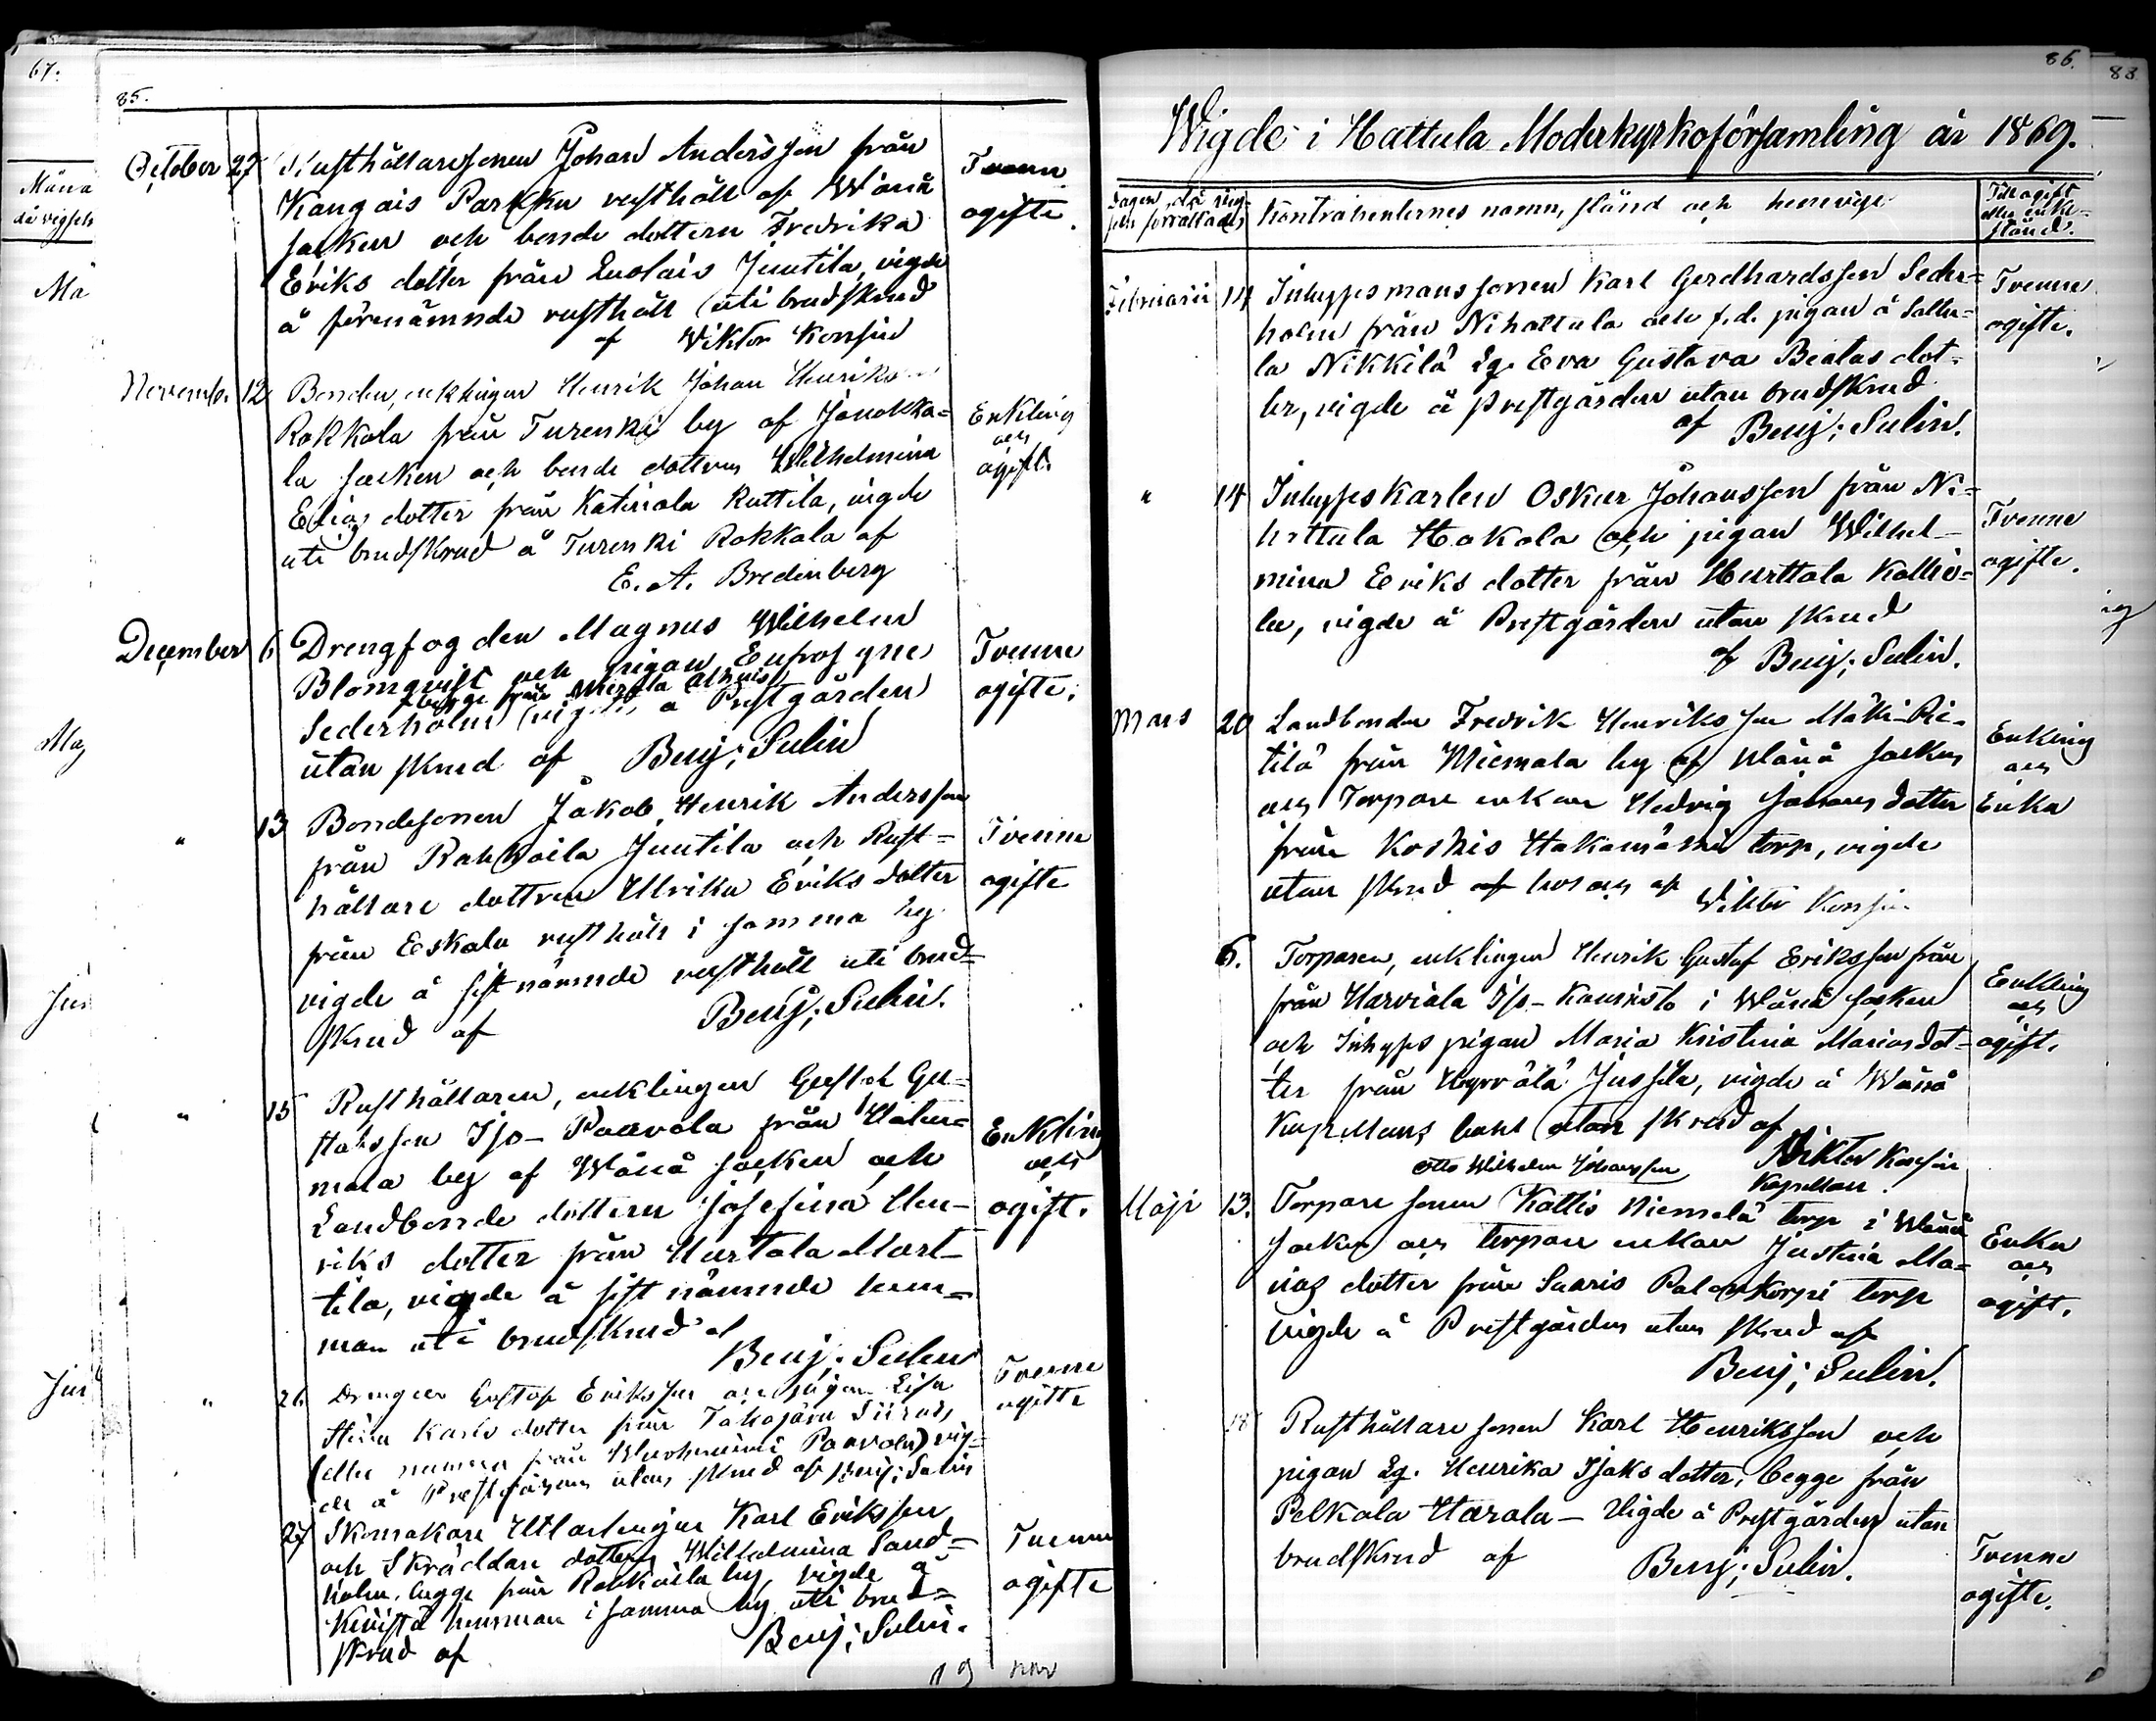 67.
85.
October 27 Rusthållaresonen Johan Andersson från
Kangais Parkku rusthåll af Wånå
socken och bonde dottern Fredrika
Eriks dotter från Luolais Juutila, vigde
å förenämnde rusthåll uti brudskrud
af Viktor Konsin
Tvenne
ogifte.
Novemb. 12 Bonden, enklingen Henrik Johan Henriksson
Rokkola från Turenki by af Janakka=
la socken och bonde dottren Wilhelmina
Elias dotter från Katinala Ruttila, vigde
uti brudskrud å Turenki Rokkala af
E. A. Bredenberg
Enkling
och
ogift.
December 6 Drengfogden Magnus Wilhelm
Blomqvist och pigan Eufrosyne
begge från Mierola
Sederholm vigde å Prestgården
utan skrud af Benj; Sulin
Tvenne
ogifte.
" 13 Bondesonen Jakob Henrik Andersson
från Rahkoila Juutila och Rust=
hållare dottren Ulrika Eriks dotter
från Eskola rusthåll i samma by
vigde å sistnämnde rusthåll uti brud=
skrud af Benj; Sulin.
Tvenne
ogifte
" 15 Rusthållaren, enklingen Gustaf Gu=
stafsson Iso-Paavola från
mala by af Wånå socken och
Landbonde dottern Josefina Hen=
riks dotter från Hurtala Mart=
tila, vigde å sist nämnde hem=
man uti brudskrud af
Benj; Sulin
Enkling
och
ogift.
" 26 Drengen Gustaf Eriksson och pigan Lisa
Stina Karls dotter från Takajärvi
(eller numera från Wuohiniemi Paavola) vig=
de å Prestgården utan skrud af Benj; Sulin
Tvenne
ogifte
27 Skomakare Karl Eriksson
och Skräddare dottren Wilhelmina Sand=
holm, begge från Rahkoila by, vigde å
hemman i samma by uti brud=
skrud af Benj; Sulin.
Tvenne
ogifte
19
86.
88
Wigde i Hattula Moderkyrkoförsamling år 1869.
Dagen, då vig=
seln förrättades
Kontrahenternes namn, stånd och hemvige
Til ogift
eller enke=
stånd.
Februarii 14 Inhysesmanssonen Karl Gerdhardsson Seder=
holm från Nihattula och f.d. pigan å Sattu=
la Nikkilä Lg. Eva Gustava Beatas dot=
ter, vigde å prestgården utan brudskrud
af Benj; Sulin.
Tvenne
ogifte.
" 14 Inhyseskarlen Oskar Johansson från Ni=
hattula Hakola och pigan Wilhel=
mina Eriks dotter från Hurttala Kallio=
la, vigde å Prestgården utan skrud
af Benj; Sulin.
Tvenne
ogifte.
Mars 20 Landbonden Fredrik Henriksson Mäkki-Pie=
tilä från Miemala by af Wånå socken
och Torpare enkan Hedvig Johans dotter
från Koskis Hakamäki torp, vigde
utan skrud af hos oss af Viktor Konsin
Enkling
och
Enka
6. Torparen, enklingen Henrik Gustaf Eriksson från
från Harviala Iso-Kaunisto i Wånå socken
och Inhyses pigan Maria Kristina Mariasdot=
ter från Hyrvälä Jussila, vigde å Wånå
Kapellans bohl utan skrud af
Viktor Konsin
Kapellan.
Enkling
och
ogift.
Otto Wilhelm Johansson
Maji 13. Torpare sonen Kattis Niemelä torp i Wånå
socken och torpare enkan Justina Ma=
rias dotter från Saaris Palokorpi torp
vigde å Prestgården utan skrud af
Benj; Sulin.
Enka
och
ogift.
18 Rusthållare sonen Karl Henriksson och
pigan Lg. Henrika Isaks dotter, begge från
Pelkola Harala - Vigde å Prestgården utan
brudskrud af Benj; Sulin.
Tvenne
ogifte.